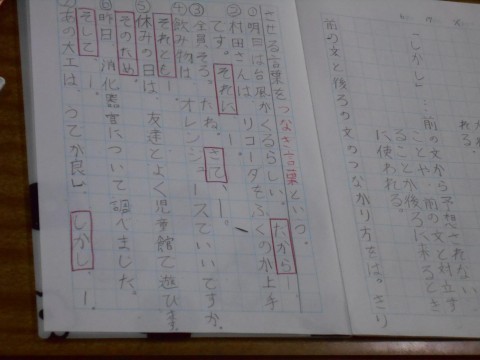 れる。
「しかし」…前の文から予想されない
ことや、前の文と対立す
ることが後ろに来るとき
に使われる。
前の文と後ろの文のつながり方をは。きり
させる言葉をつなぎ言葉という。
①明日は台風がくるらしい。だから―。
②村田さんは、リコーダをふくのが上手
です。それに―。
③全員そろったね。さて、―。
④飲み物は、オレンジュースでいいですか。
それとも―。
⑤休みの日は、友達とよく児童館で遊びます。
そのため、―。
⑥昨日、消化器官について調べました。
そして―。
うでが良い。しかし、―。